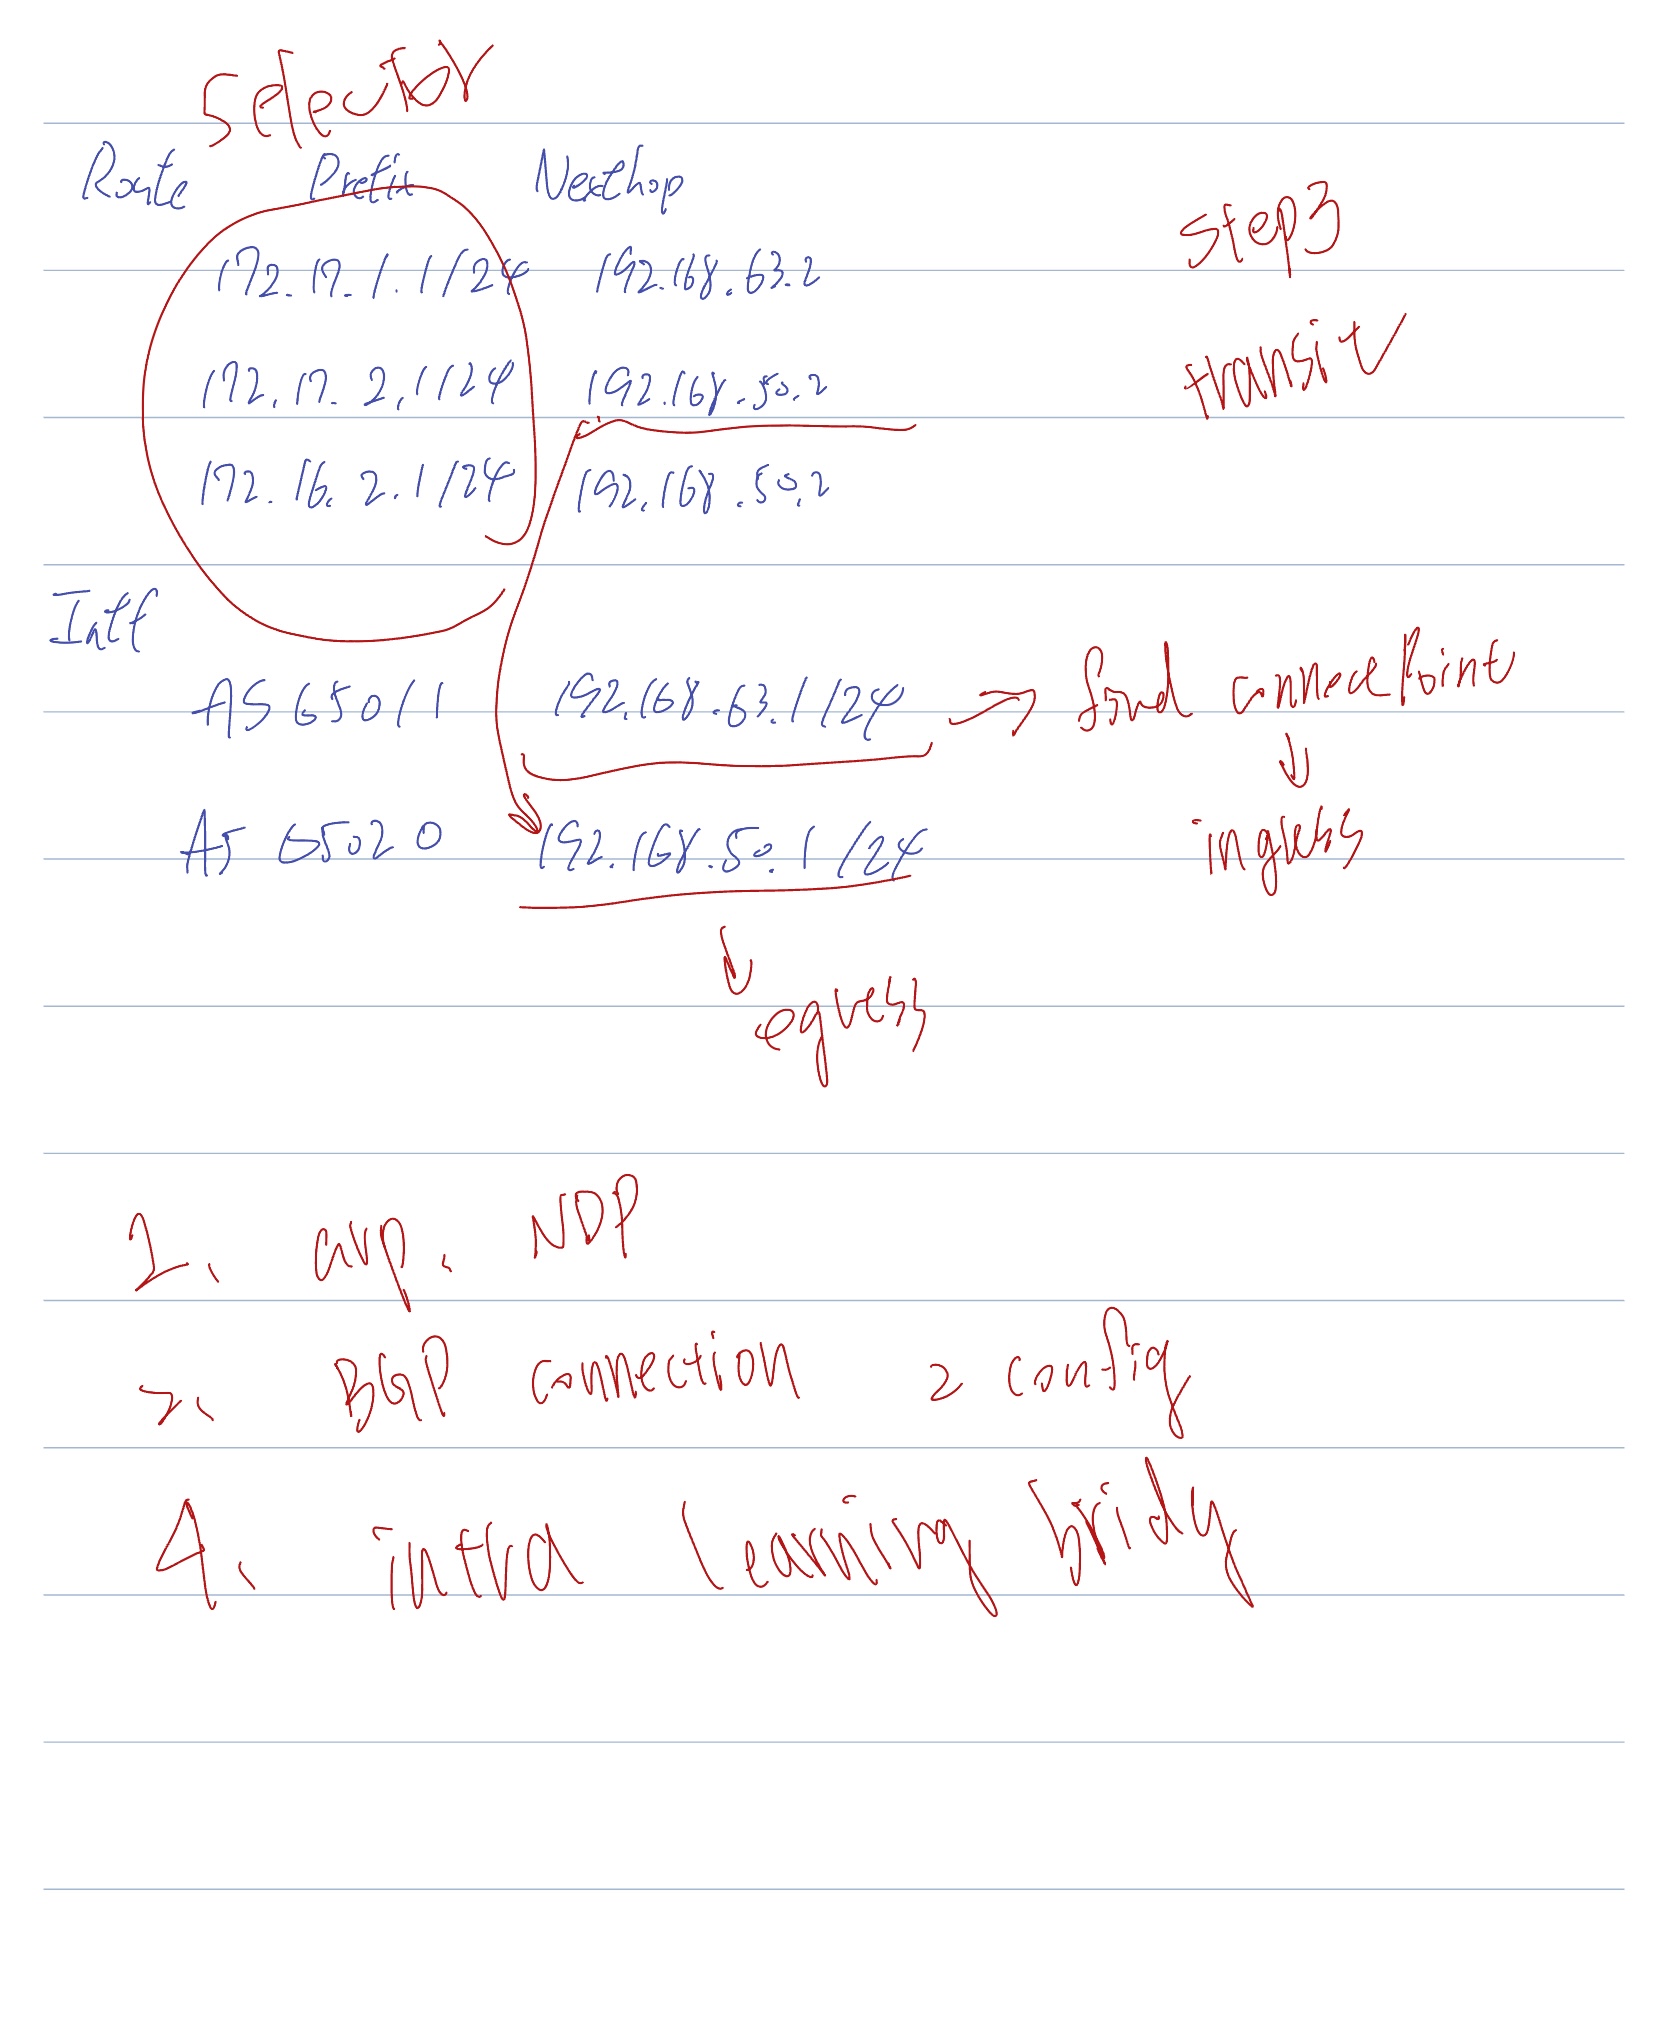 Selector
Route Prefix Nexthop
172.17.1.1/24 192.168.63.2
172.17.2.1/24 192.168.50.2
172.16.2.1/24 192.168.50.2
step3
transit
Intf
AS 65011 192.168.63.1/24 → find connectPoint
↓
ingress
AS 65020 192.168.50.1/24
↓
egress
1. arp. NDP
2. BGP connection 2 config
4. intra learning bridy